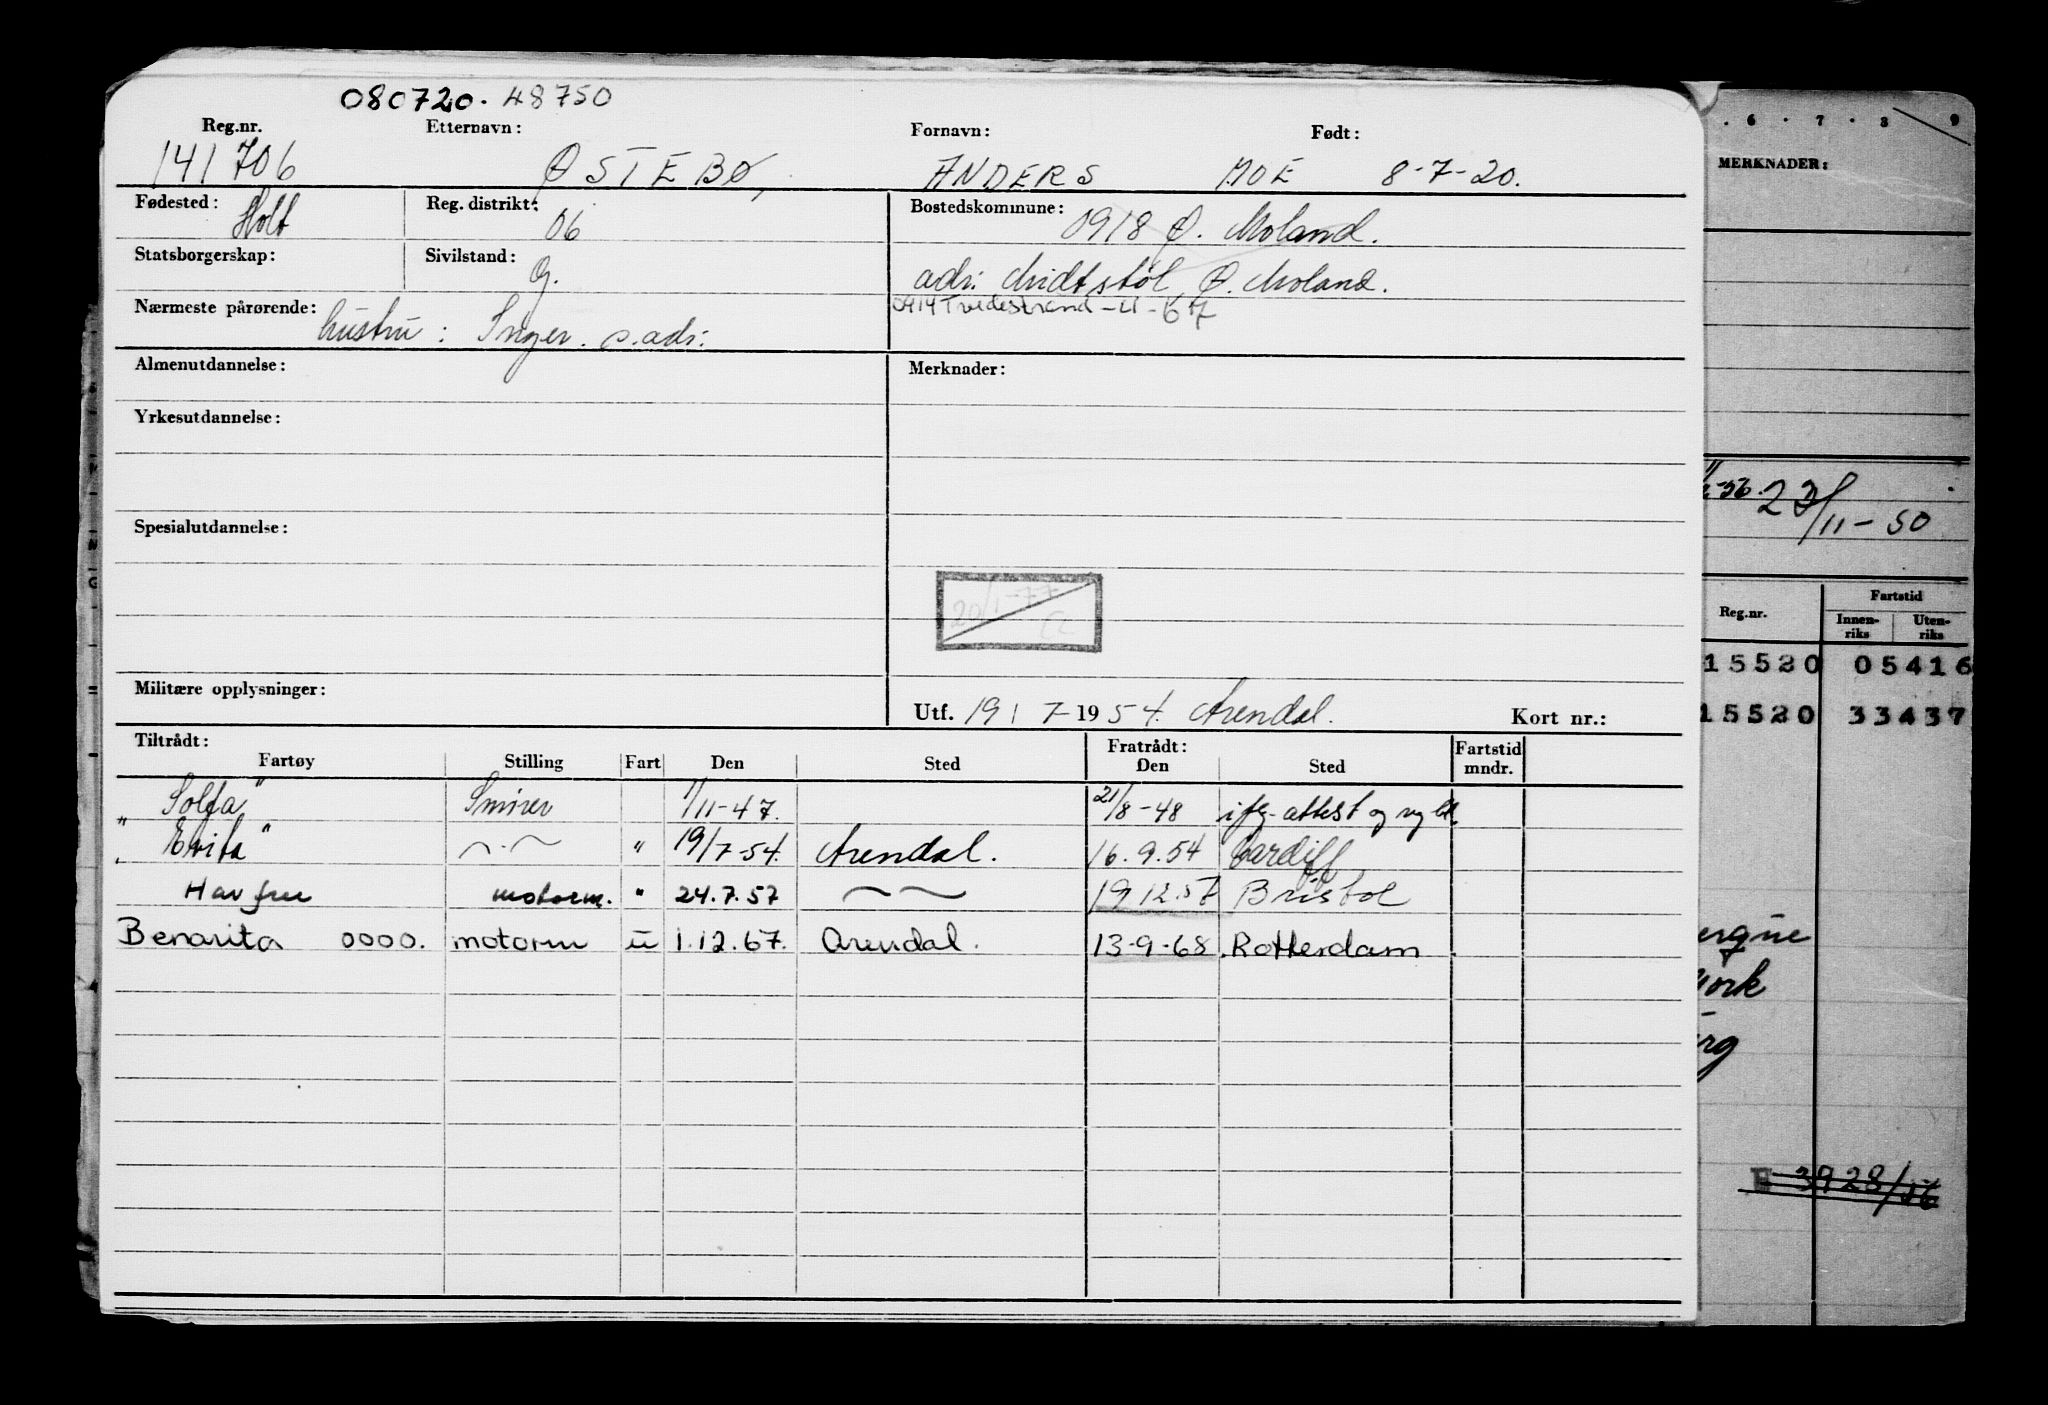 080720. 48750
Reg.nr. Etternavn: Fornavn: Født:
141706 ØSTEBØ, ANDERS MOE 8-7-20.
Fødested: Holt Reg. distrikt: 06 Bostedskommune: 0918 Ø. Moland.
Statsborgerskap: Sivilstand: G. adr: Midtstøl, Ø. Moland.
Nærmeste pårørende: hustru: Inger. s.adr: 0914 Tvedestrand - U - 67
Almenutdannelse: Merknader:
Yrkesutdannelse:
Spesialutdannelse:
20/1-77
Militære opplysninger:
Utf. 19 / 7-1954. Arendal. Kort nr.:
Tiltrådt: Fratrådt: Fartstid
Fartøy Stilling Fart Den Sted Den Sted mndr.
"Solfa" Smører 1/11-47. 21/8-48 ifg. attest og
"Evita" " 19/7-54. Arendal. 16.9.54 Cardiff
Havfru motorm. " 24.7.57 19 12.57 Bristol
Benarita 0000. motorm u 1.12.67. Arendal. 13-9-68. Rotterdam
. 6 . 7 . 8 9
MERKNADER:
-56. 23/11-50
Reg.nr. Fartstid
Innenriks Utenriks
15520 05416
15520 33437
ergne
York
rg
3928/56